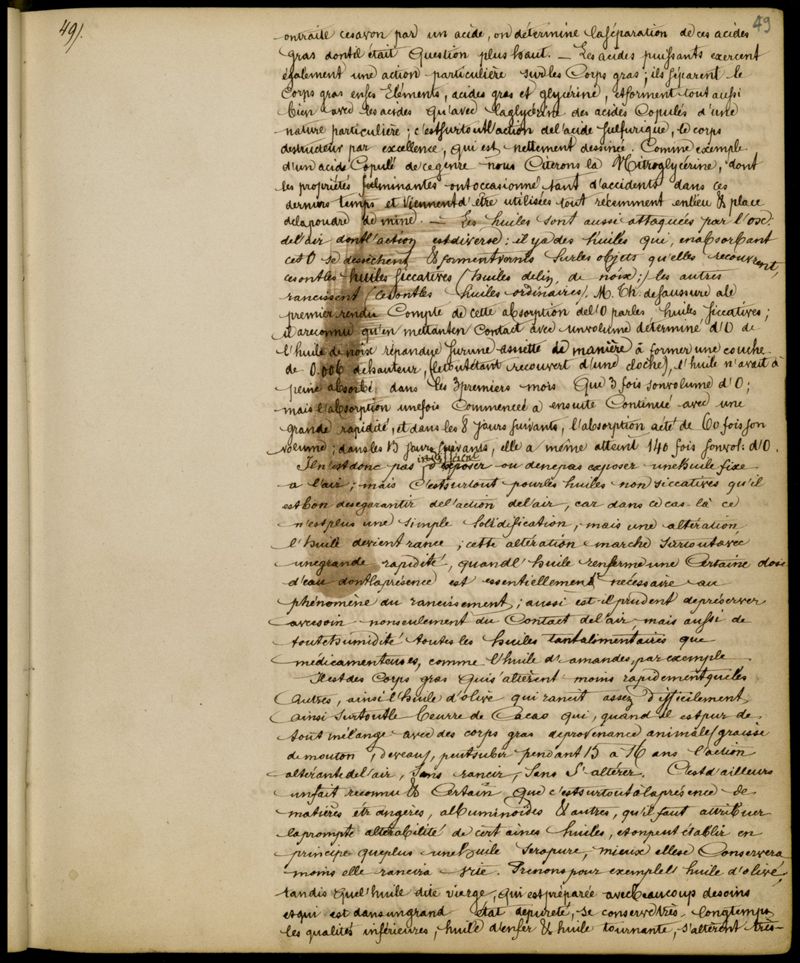 49/.
49
ontraite cesavon par un acide, on détermine la séparation de ces acides
gras dont il était Question plus haut. — Les acides puissants exercent
également une action particulière sur les Corps gras ; ils séparent le
Corps gras en ses Eléments, acides gras et glycérine, et forment tout aussi
bien avec les acides qu'avec la glycérine des acides Copulés d'une
nature particulière ; c'est surtout l'action de l'acide sulfurique, le corps
destructeur par excellence, qui est nettement dessinée. Comme exemple
d'un acide Copulé de ce genre nous Citerons la Nitroglycérine, dont
les propriétés fulminantes ont occasionné tant d'accidents dans ces
derniers temps et viennent d'être utilisées tout récemment en lieu & place
de la poudre de mine. — Les huiles sont aussi attaquées par l'ox.
de l'air dont l'action est diverse : il y a des huiles qui, en absorbant
cet O se dessèchent & forment vernis sur les objets qu'elles recouvrent,
ce sont les huiles siccatives (huiles de lin, de noix ;) les autres
rancissent (Ce sont les huiles ordinaires). M. Th. de Saussure a le
premier rendu Compte de cette absorption de l'O par les huiles siccatives ;
il a reconnu qu'en mettant en Contact avec un volume déterminé d'O de
l'huile de noix répandue sur une assiette de manière à former une couche
de 0.006 de hauteur, (le tout étant recouvert d'une cloche), l'huile n'avait à
peine absorbé dans les 3 premiers mois Que 3 fois son volume d'O ;
mais l'absorption une fois Commencée a ensuite Continué avec une
grande rapidité, et dans les 8 Jours suivants, l'absorption a été de 60 fois son
volume ; dans les 15 Jours suivants, elle a même atteint 140 fois son vol. d'O.
indifférent
Il n'est donc pas d'exposer ou de ne pas exposer une huile fixe
a l'air ; mais C'est surtout pour les huiles non siccatives qu'il
est bon de se garantir de l'action de l'air, car dans ce cas là ce
n'est plus une simple Solidification, mais une altération
l'huile devient rance ; cette altération marche surtout avec
une grande rapidité, quand l'huile renferme une Certaine dose
d'eau dont la présence est essentiellement nécessaire au
phénomène du rancissement ; aussi est-il prudent de préserver
avec soin non seulement du Contact de l'air mais aussi de
toute humidité toutes les huiles tant alimentaires que
médicamenteuses, comme l'huile d'amandes, par exemple
Il est des Corps gras qui s'altèrent moins rapidement que les
Autres, ainsi l'huile d'olive qui rancit assez difficilement
Ainsi surtout le beurre de Cacao qui, quand il est pur de
tout mélange avec des corps gras de provenance animale (graisse
de mouton, de veau), peut subir pendant 15 a 16 ans l'action
altérante de l'air, Sans rancir, Sans S'altérer. C'est d'ailleurs
un fait reconnu & Certain, Que c'est surtout à la présence de
matières étrangères, albuminoïdes & autres, qu'il faut attribuer
la prompte altérabilité de certaines huiles, et on peut établir en
principe que plus une huile sera pure, mieux elle se Conservera
moins elle rancira vite. Prenons pour exemple l'huile d'olive,
tandis que l'huile dite vierge, qui est préparée avec beaucoup de soins
et qui est dans un grand état de pureté, se conserve très longtemps
les qualités inférieures, huile d'enfer & huile tournante, s'altèrent très-